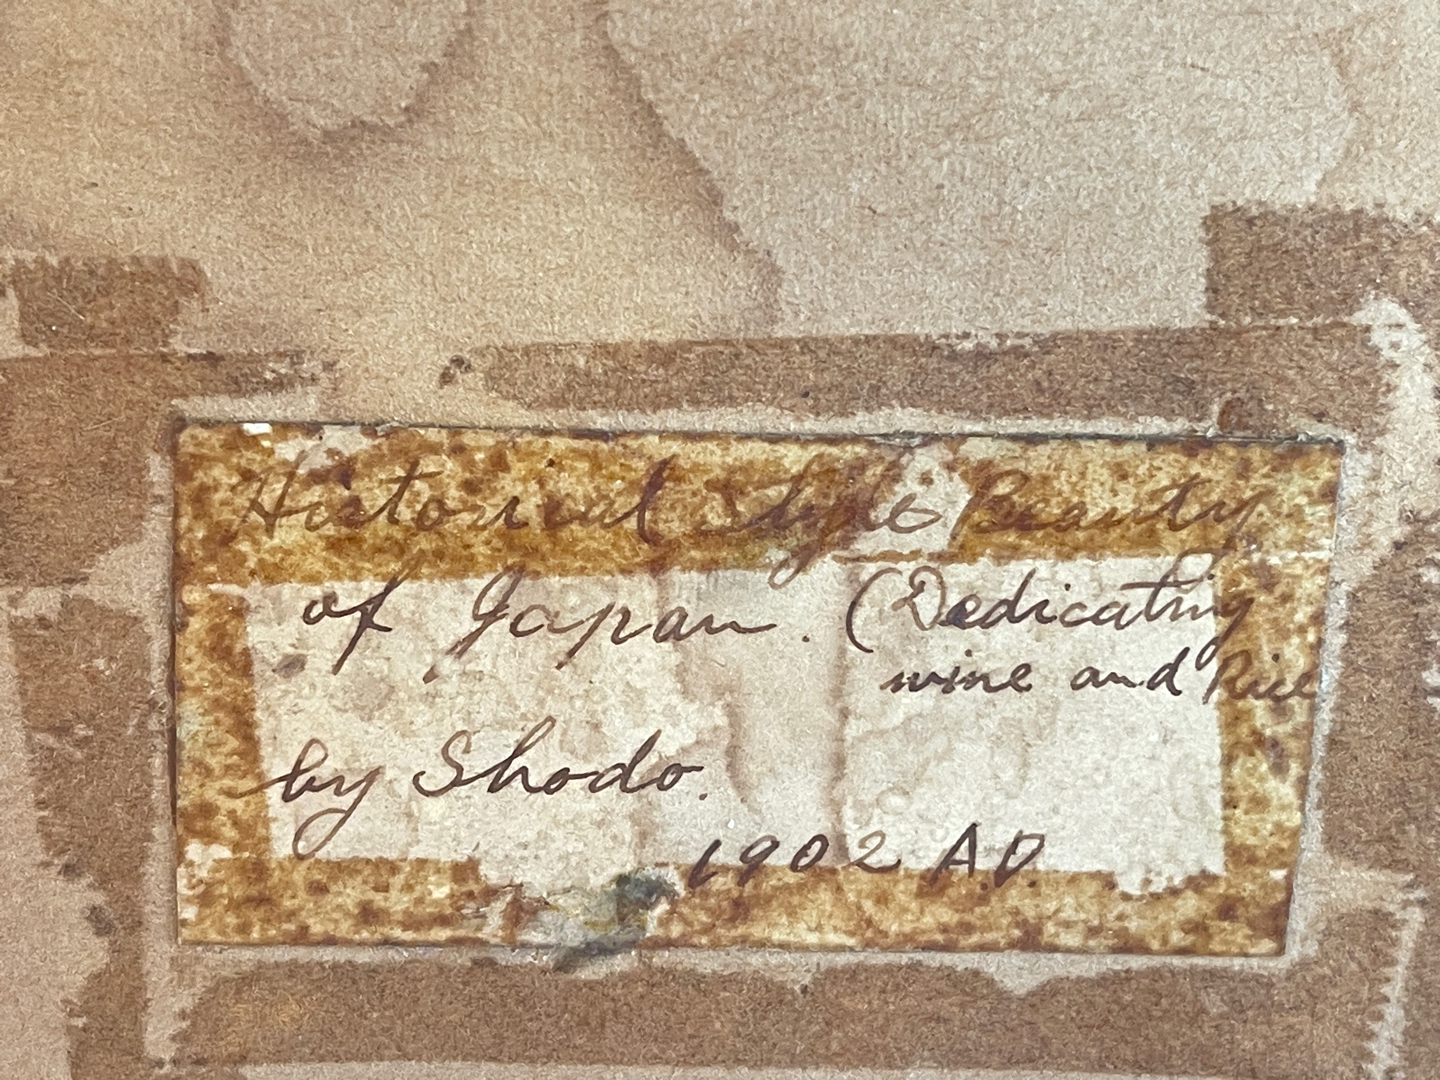 Historical Style Beauty
of Japan. (Dedicating
wine and Rice
by Shodo.
1902 A.D